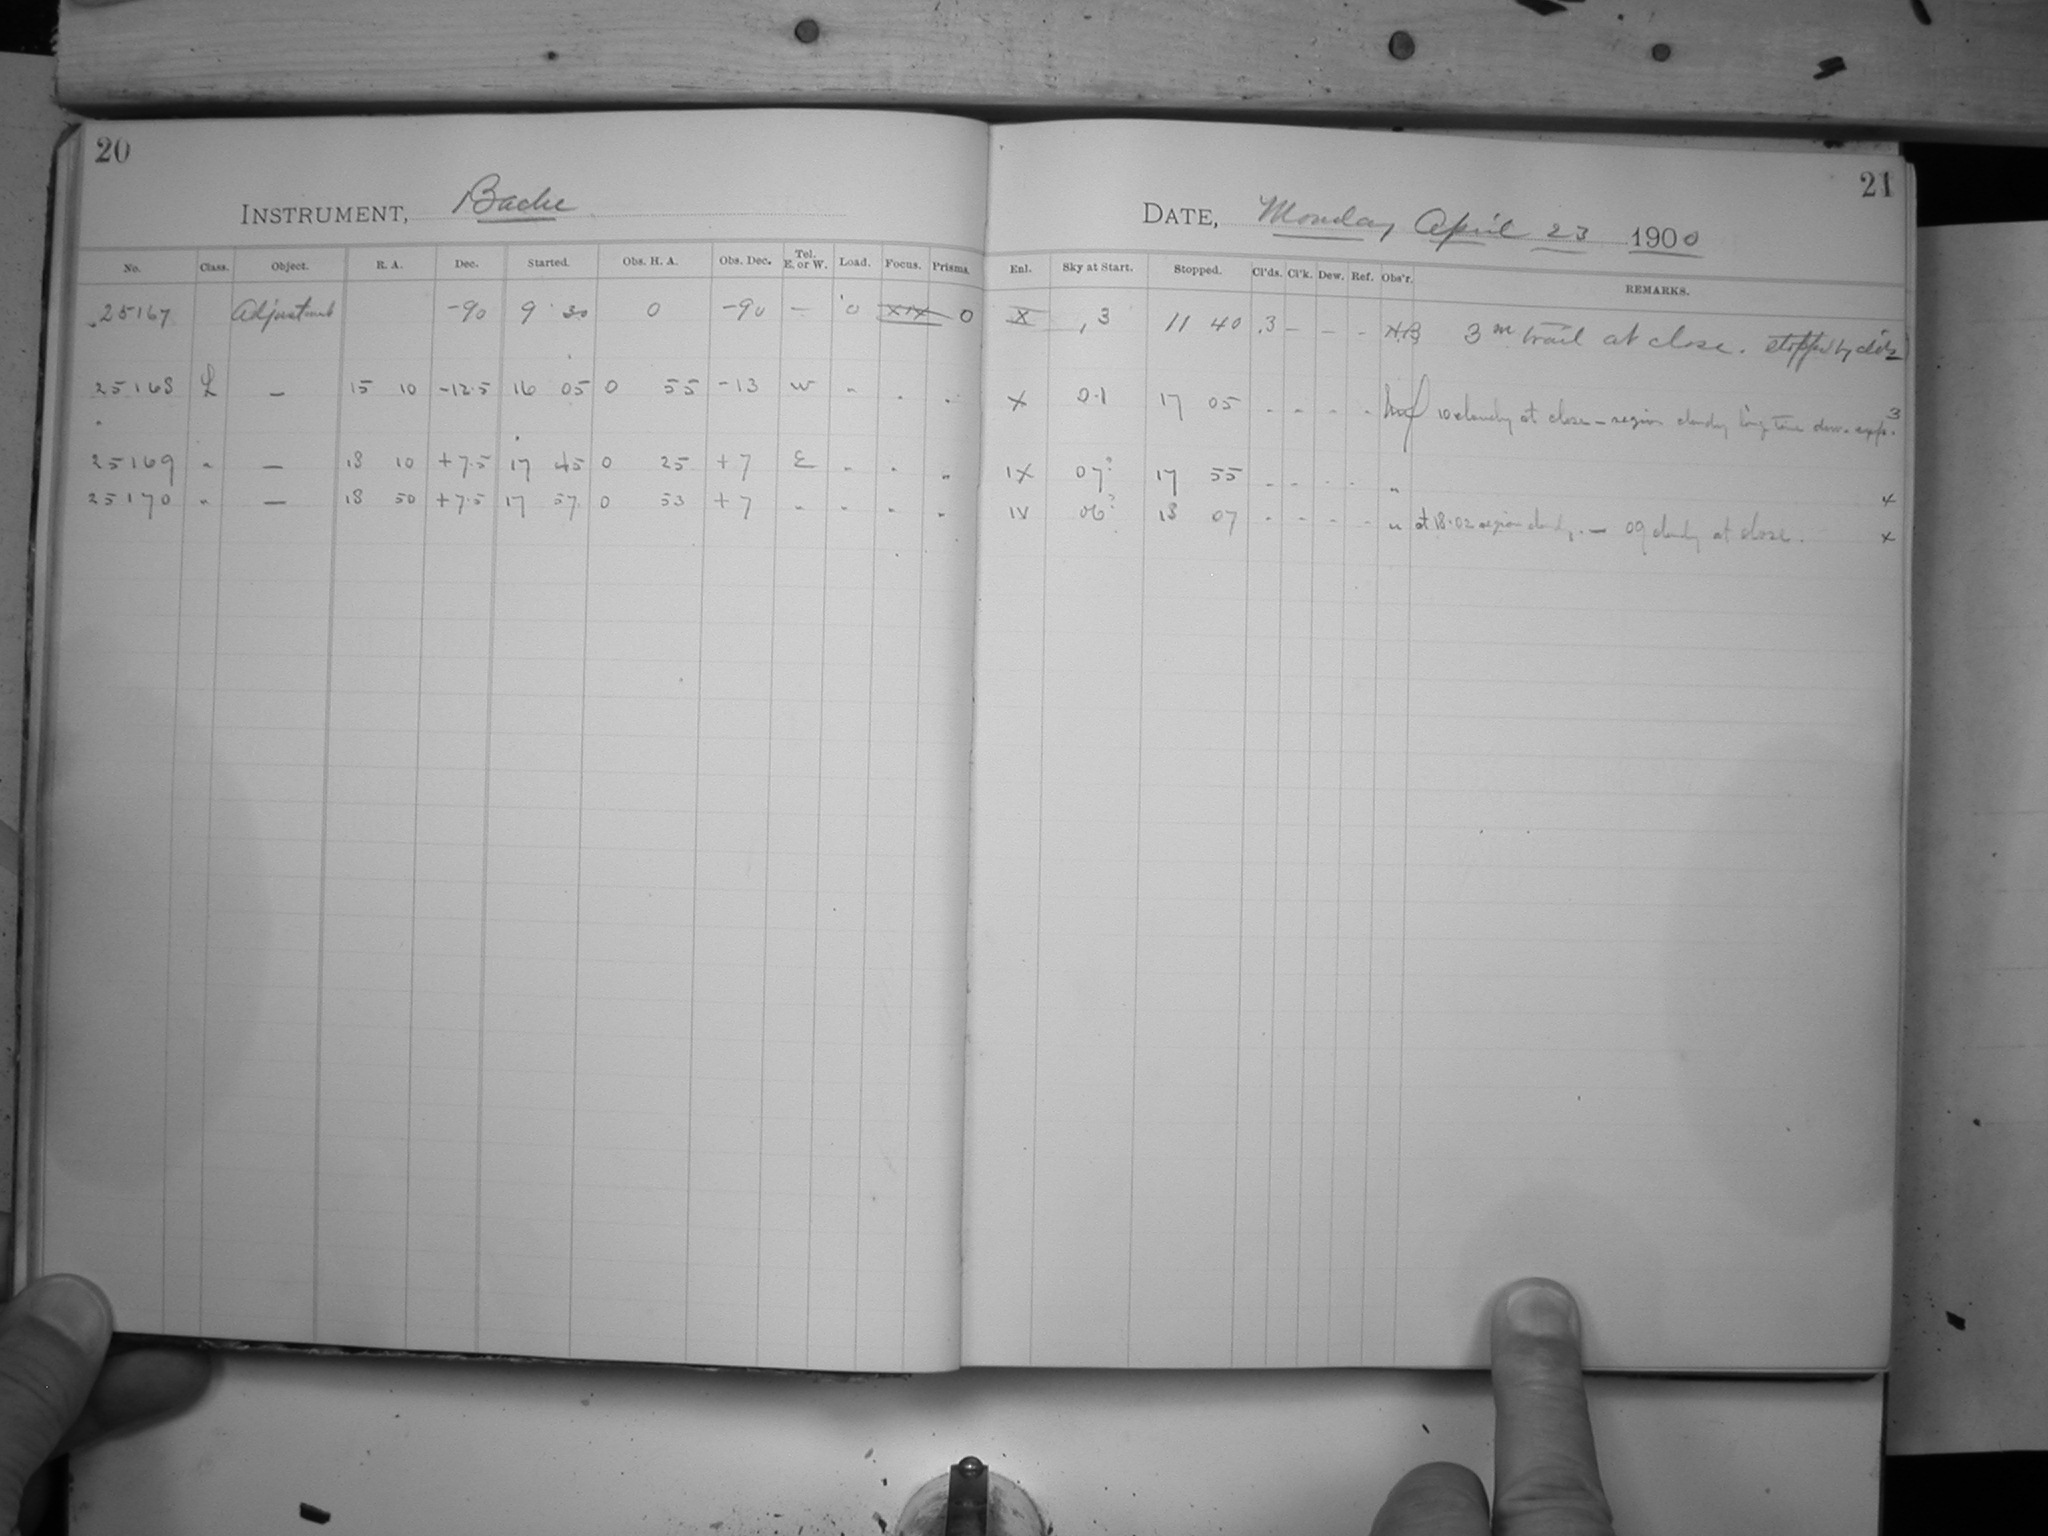 20
INSTRUMENT, Bache
No. Class. Object. R. A. Dec. Started. Obs. H. A. Obs. Dec. Tel. E. or W. Load. Focus. Prisms.
25167 Adjustment -90 9 30 0 -90 — 0 XIX 0
25168 L — 15 10 -12.5 16 05 0 55 -13 W " " "
25169 " — 18 10 +7.5 17 45 0 25 +7 E " " "
25170 " — 18 50 +7.5 17 57 0 53 +7 " " " "
21
DATE, Monday April 23 1900
Enl. Sky at Start. Stopped. Cl'ds. Cl'k. Dew. Ref. Obs'r. REMARKS.
X .3 11 40 .3 — — — 3m trail at close. stopped by clds
X 0.1 17 05 - - - - 10 cloudy at close — region cloudy long time dur. exp. 3
IX 07? 17 55 - - - - " 4
IV 06? 18 07 - - - - " at 18.02 region cloudy. — 09 cloudy at close. x